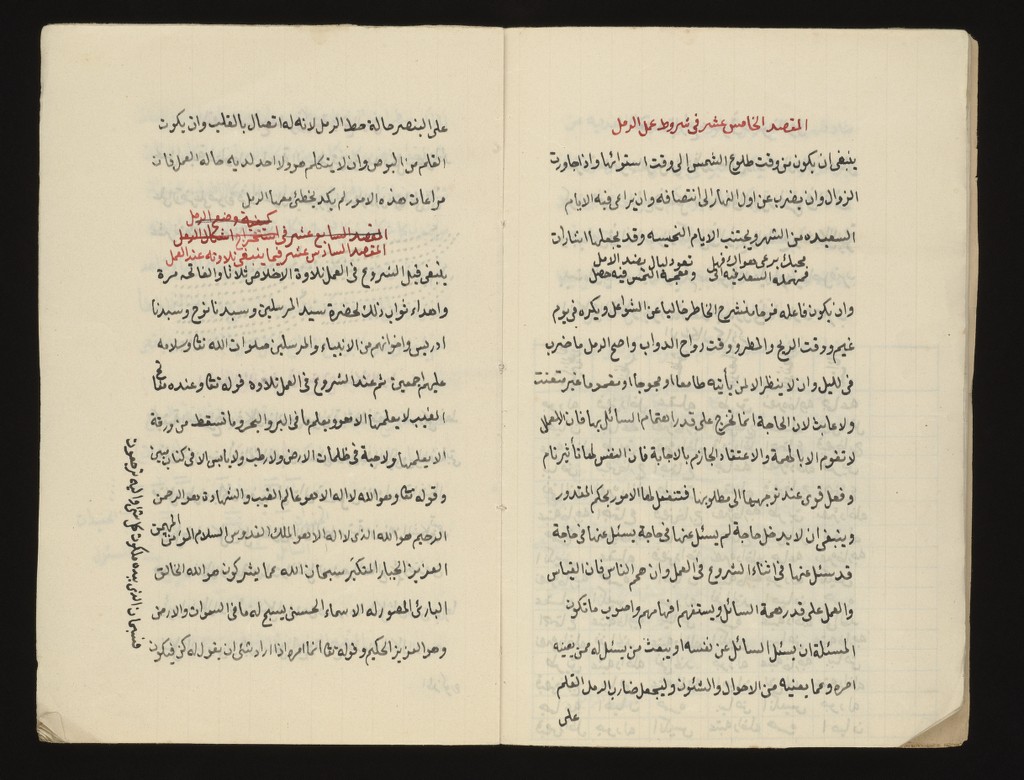 المقصد الخامس عشر فى شروط عمل الرمل
ينبغى ان يكون من وقت طلوع الشمس الى وقت استوائها واذا جاوزت
الزوال وان يضرب عن اول النهار الى انتصافه وان يراعى فيه الايام
السعيده من الشهر ويجتنب الايام النحيسه وقد يجعلها اشارات
وان يكون فاعله فرحا منشرح الخاطر خاليا عن الشواغل ويكره فى يوم
غيم ووقت الريح والمطر ووقت رواح الدواب واصح الرمل ما ضرب
فى الليل وان لا ينظر الا لمن يأتيه طامعا او مغموما غير متعنت
ولا عابث لان الحاجة انما تخرج على قدر اهتمام السائل بها فان العمل
لا تقوم الا بالهمة والاعتقاد الجازم بالاجابة فان النفس لها تأثير تام
وفعل قوى عند توجهها الى مطلوبها فتنفعل لها الامور بحكم المقدور
وينبغى ان لا يدخل حاجة لم يسئل عنها فى حاجة يسئل عنها فى حاجة
قد سئل عنها فى اثناء الشروع فى العمل وان همم الناس فان القياس
والعمل على قدر همة السائل ويستفهم افهامهم واصوب ما تكون
المسئلة ان يسئل السائل عن نفسه او يبعث من يسئل له ممن يعينه
امره وعما يعنيه من الاحوال والشئون وليجعل ضارب الرمل القلم
على
على البنصر حالة خط الرمل لانه له اتصال بالقلب وان يكون
القلم من البوص وان لا يتكلم هو ولا احد لديه حالة العمل فان
مراعات هذه الامور لم يكد يخطئ معها الرمل
كيفية وضع الرمل
المقصد السابع عشر فى استخراج اشكال الرمل
المقصد السادس عشر فيما ينبغى تلاوته عند العمل
ينبغى قبل الشروع فى العمل تلاوة الاخلاص ثلاثا والفاتحه مرة
واهداء ثواب ذلك لحضرة سيد المرسلين وسيدنا نوح وسيدنا
ادريس واخوانهم من الانبياء والمرسلين صلوات الله تعا وسلامه
عليهم اجمعين ثم عند الشروع فى العمل تلاوة قوله تعا وعنده مفاتح
الغيب لا يعلمها الا هو ويعلم ما فى البر والبحر وما تسقط من ورقة
الا يعلمها ولا حبة فى ظلمات الارض ولا رطب ولا يابس الا فى كتاب مبين
وقوله تعا هو الله لا اله الا هو عالم الغيب والشهادة هو الرحمن
الرحيم هو الله الذى لا اله الا هو الملك القدوس السلام المؤمن المهيمن
العزيز الجبار المتكبر سبحان الله عما يشركون هو الله الخالق
البارئ المصور له الاسماء الحسنى يسبح له ما فى السموات والارض
وهو العزيز الحكيم وقوله تعا انما امره اذا اراد شئ ان يقول له كن فيكون
فسبحان الذى بيده ملكوت كل شئ واليه ترجعون